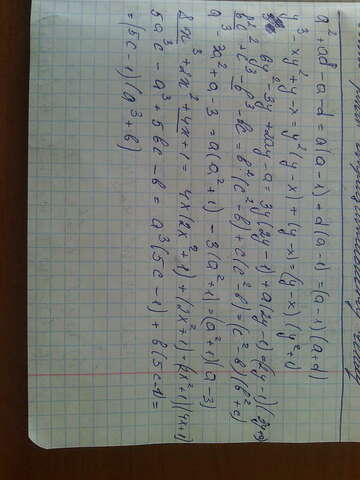 a² + ad - a - d = a(a-1) + d(a-1) = (a-1)(a+d)
y³ - xy² + y - x = y²(y-x) + (y-x) = (y-x)(y²+1)
6y² - 3y + 2ay - a = 3y(2y-1) + a(2y-1) = (2y-1)(3y+a)
b²c² + c³ - b³ - bc = b²(c²-b) + c(c²-b) = (c²-b)(b²+c)
a³ - 3a² + a - 3 = a(a²+1) - 3(a²+1) = (a²+1)(a-3)
8x³ + 2x² + 4x + 1 = 4x(2x²+1) + (2x²+1) = (2x²+1)(4x+1)
5a³c - a³ + 5bc - b = a³(5c-1) + b(5c-1) =
= (5c-1)(a³+b)